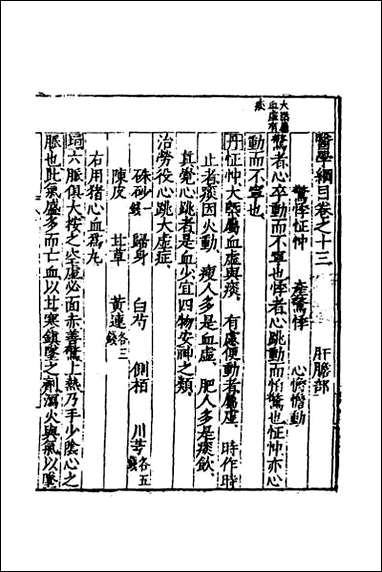 醫學綱目卷之十三　肝膽部
驚悸怔忡　產驚悸　心憺憺動
大槩屬血虛有痰
驚者心卒動而不寧也悸者心跳動而怕驚也怔忡亦心
動而不寧也
丹怔忡大槩屬血虛與痰　有慮便動者屬虛　時作時
止者痰因火動　瘦人多是血虛　肥人多是痰飲
真覺心跳者是血少宜四物安神之類
治勞役心跳大虛症
硃砂　歸身　白芍　側栢　川芎各五錢
陳皮　甘草　黃連各三錢
右用猪心血爲丸
琦六脈俱大按之空虛必面赤善驚上熱乃手少陰心之
脈也此氣盛多而亡血以甘寒鎮墜之劑瀉火與氣以墜